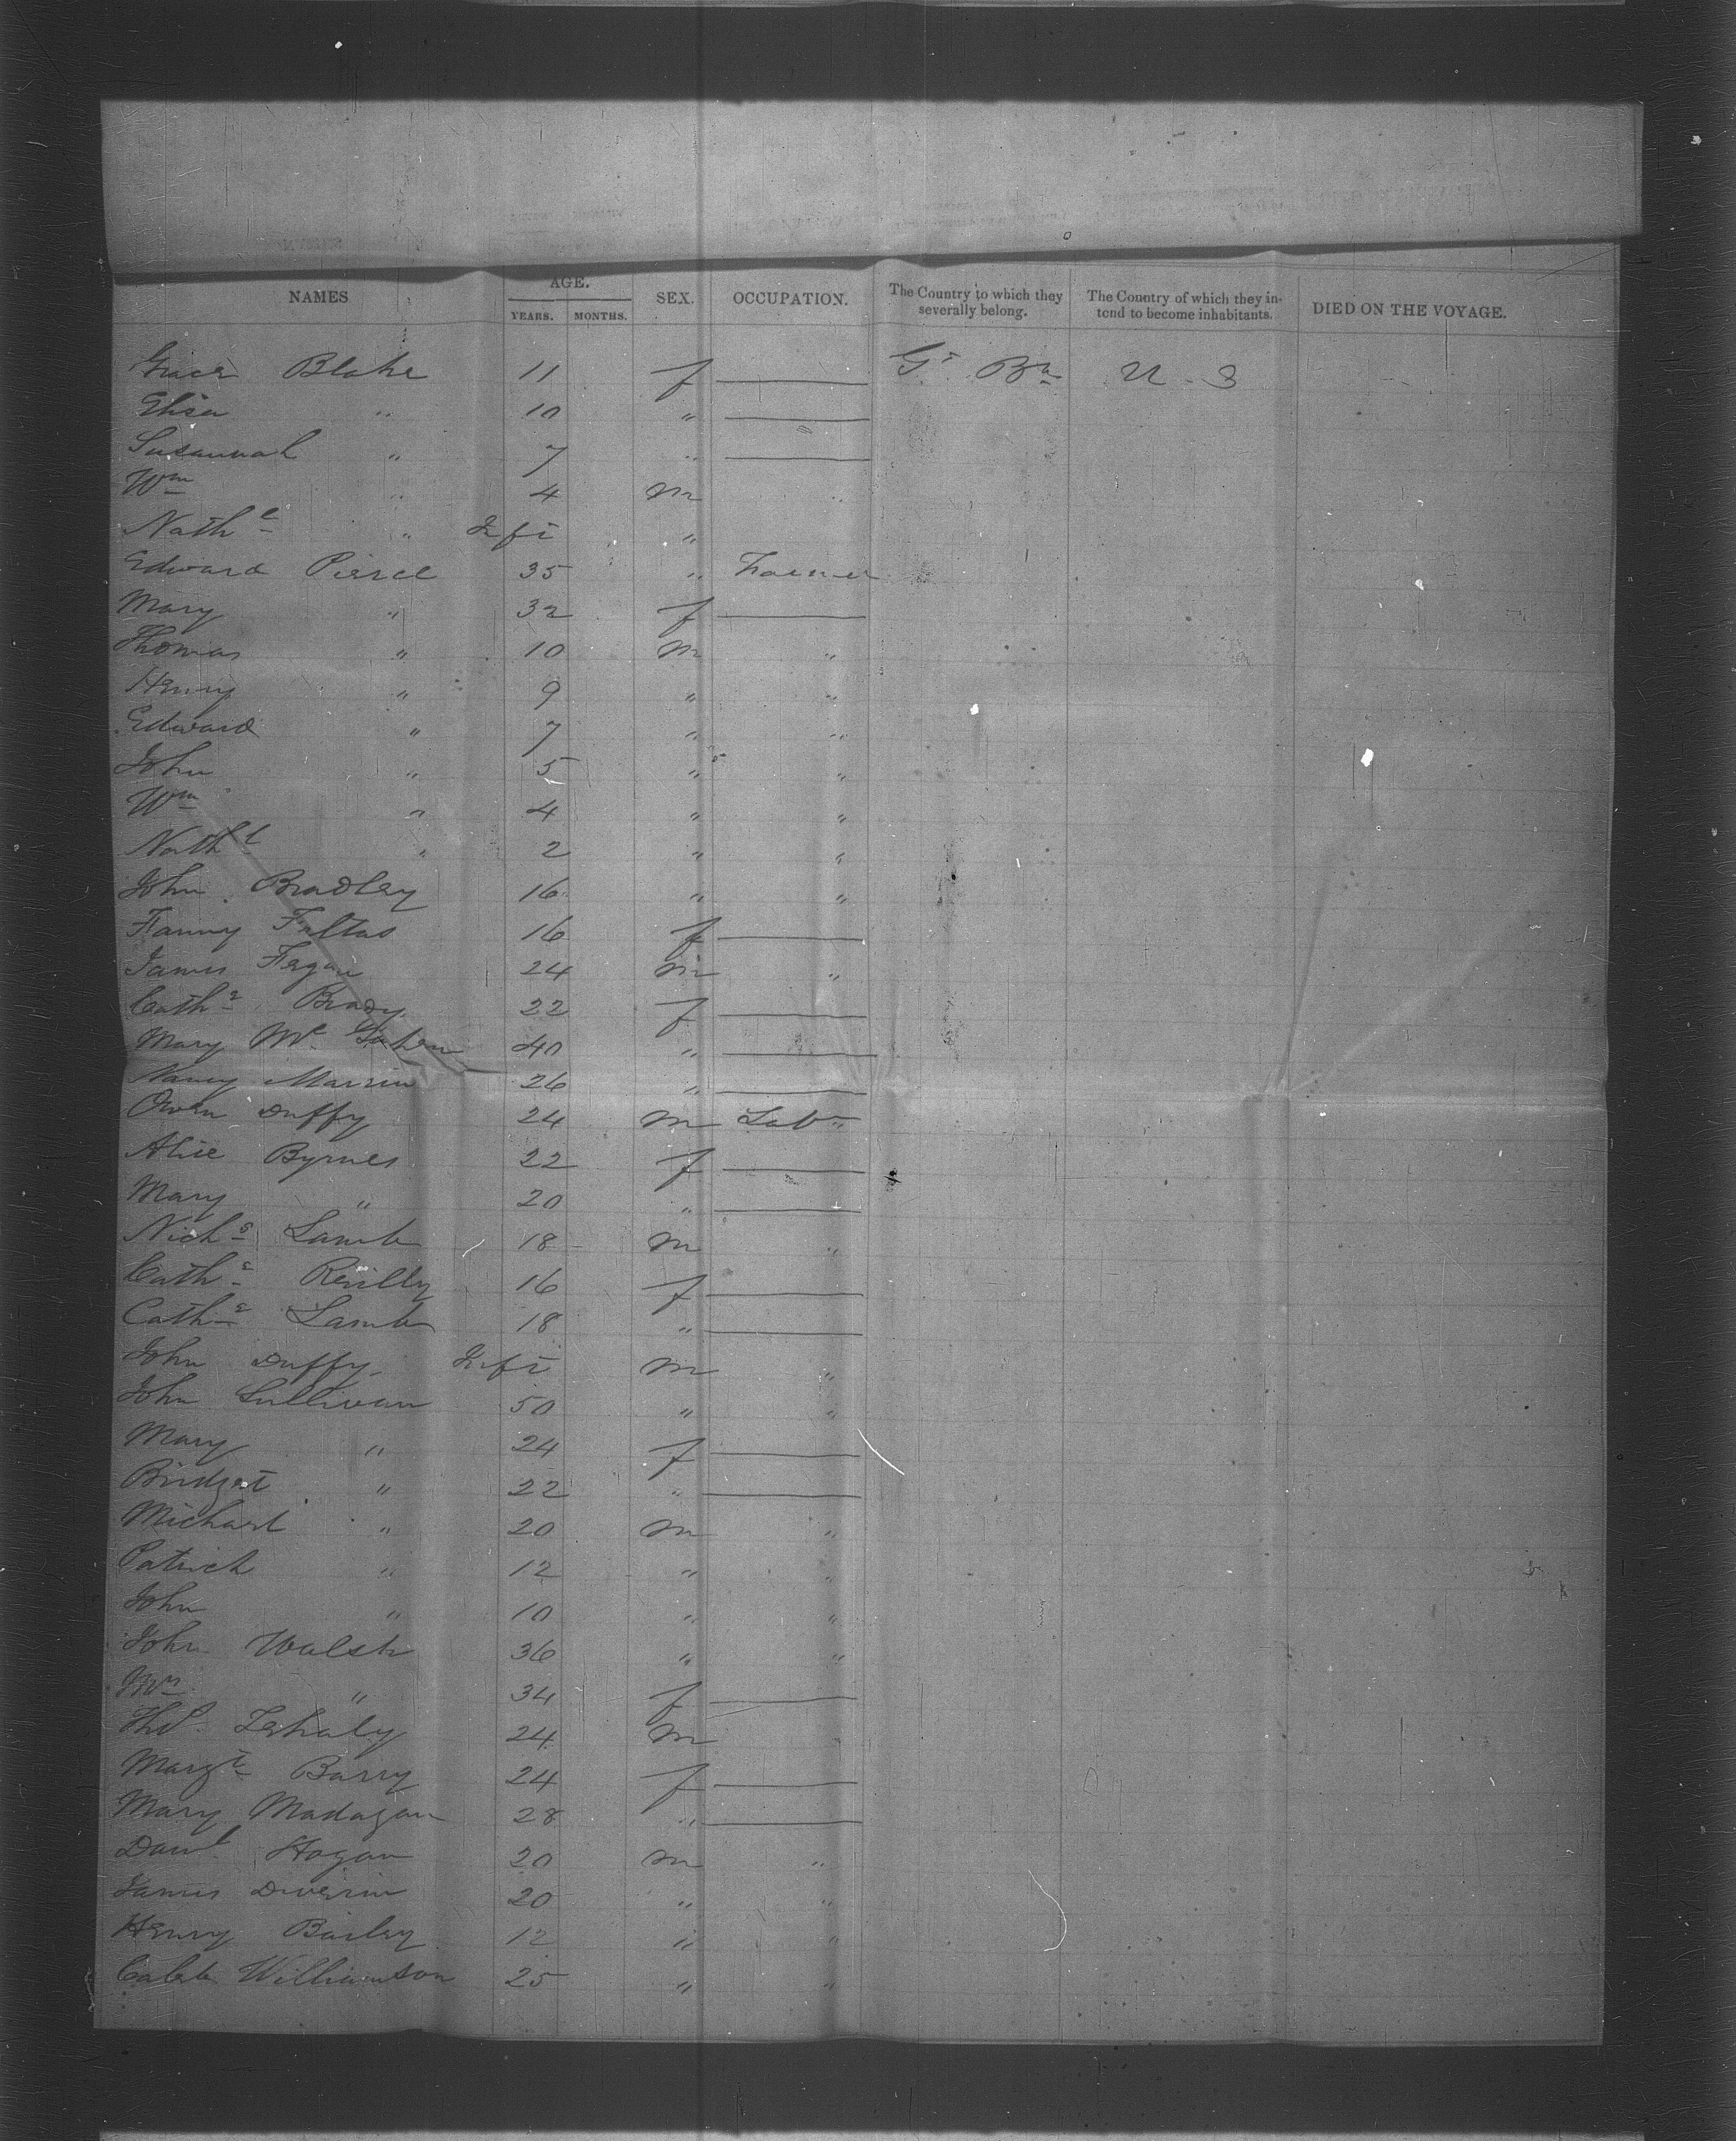 NAMES AGE. YEARS. MONTHS. SEX. OCCUPATION. The Country to which they severally belong. The Country of which they intend to become inhabitants. DIED ON THE VOYAGE.
Grace Blake 11 f Gt Bn U.S
Eliza " 10 "
Susannah " 7 "
Wm " 4 m "
Nathl " Inft "
Edward Pierce 35 " Farmer
Mary " 32 f
Thomas " 10 m "
Henry " 9 " "
Edward " 7 " "
John " 5 " "
Wm " 4 " "
Nathl " 2 " "
John Bradley 16 " "
Fanny 16 f
James Fegan 24 m "
Cathe Brady 22 f
Mary Mc 40 "
Nancy 26 "
Owen Duffy 24 m Labr
Alice Byrnes 22 f
Mary " 20 "
Nichs Lamb 18 m "
Cathe Reilly 16 f
Cathe Lamb 18 "
John Duffy Inft m "
John Sullivan 50 " "
Mary " 24 f
Bridget " 22 "
Michael " 20 m "
Patrick " 12 " "
John " 10 " "
John Walsh 36 " "
" 34 f
Thos 24 m
Margt Barry 24 f
Mary Madagan 28 "
Danl Hogan 20 m "
James 20 " "
Henry Bailey 12 " "
Caleb Williamson 25 " "